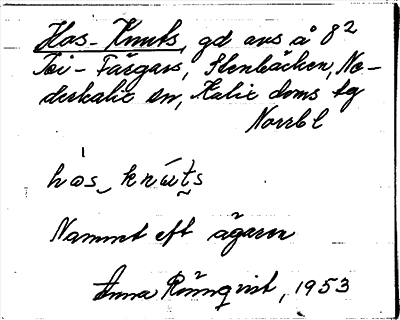 Hos-Knuts, gd avs å 8²
Toi-Färgars, Stenbäcken, Ne-
derkalix sn, Kalix doms tg
Norrb l
hos knuts
Namnet eft ägaren
Anna Rönnqvist, 1953